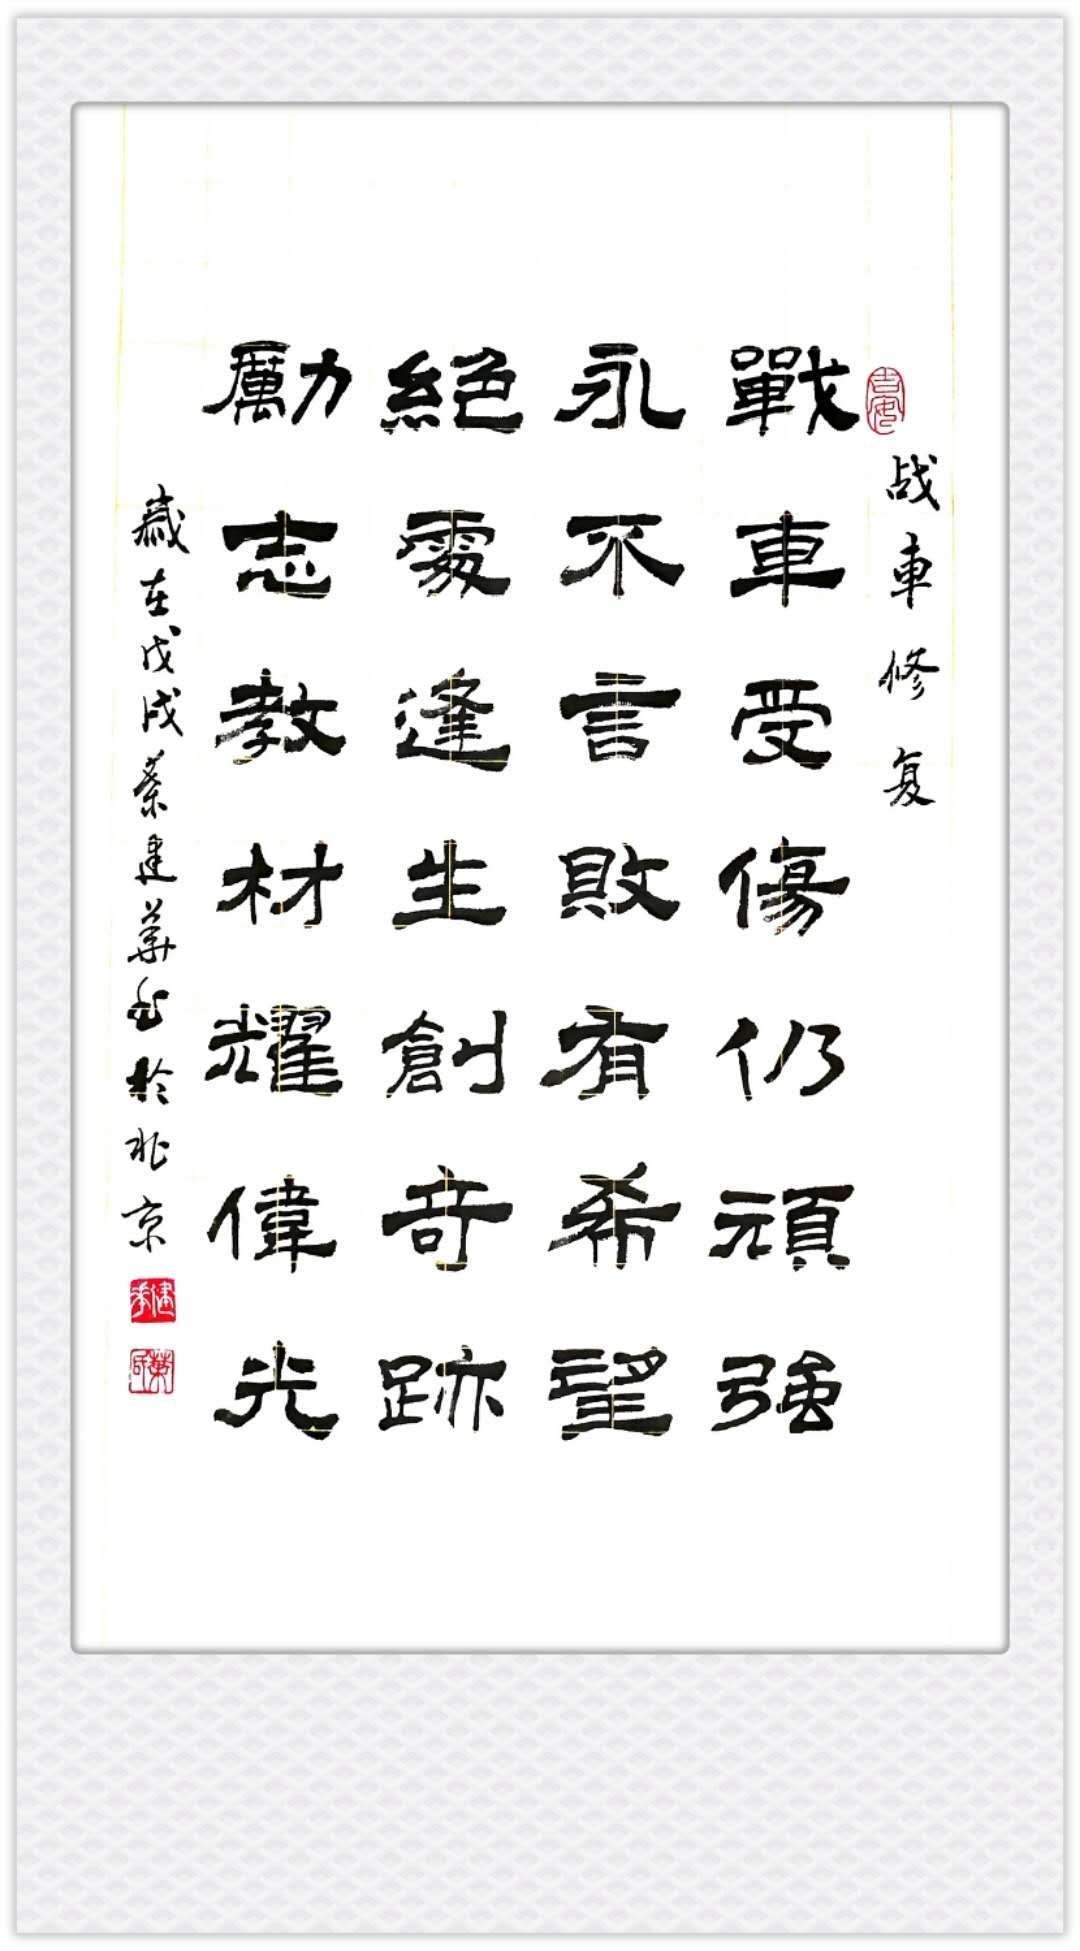 战車修复
戰車受傷仍頑強
永不言敗有希望
絕處逢生創奇跡
勵志教材耀偉光
歲在戊戌建華書於北京
建華